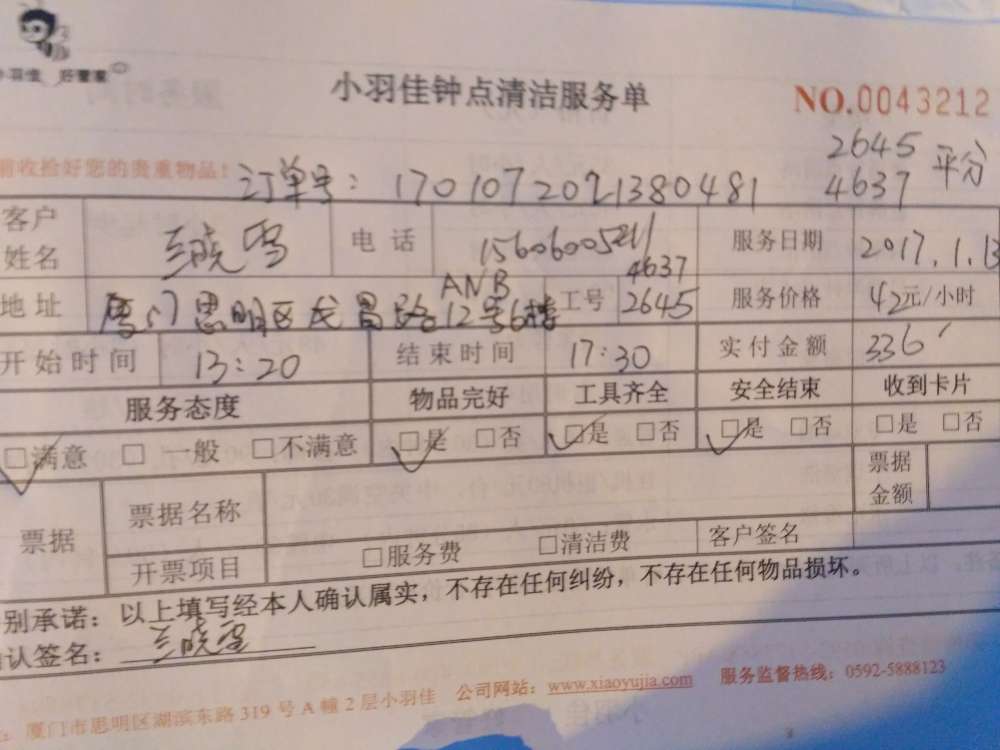 小羽佳 好管家
小羽佳钟点清洁服务单
NO.0043212
前收拾好您的贵重物品!
订单号: 1701072021380481
2645
4637 平分
客户姓名 兰晓雪 电话 15606005211 服务日期 2017.1.13
地址 厦门思明区龙昌路12号6楼 ANB 工号 4637 2645 服务价格 42元/小时
开始时间 13:20 结束时间 17:30 实付金额 336
服务态度 物品完好 工具齐全 安全结束 收到卡片
□满意 □一般 □不满意 □是 □否 □是 □否 □是 □否 □是 □否
票据 票据名称 票据金额
开票项目 □服务费 □清洁费 客户签名
别承诺: 以上填写经本人确认属实,不存在任何纠纷,不存在任何物品损坏。
认签名: 兰晓雪
厦门市思明区湖滨东路 319 号 A 幢 2 层小羽佳 公司网站: www.xiaoyujia.com 服务监督热线: 0592-5888123